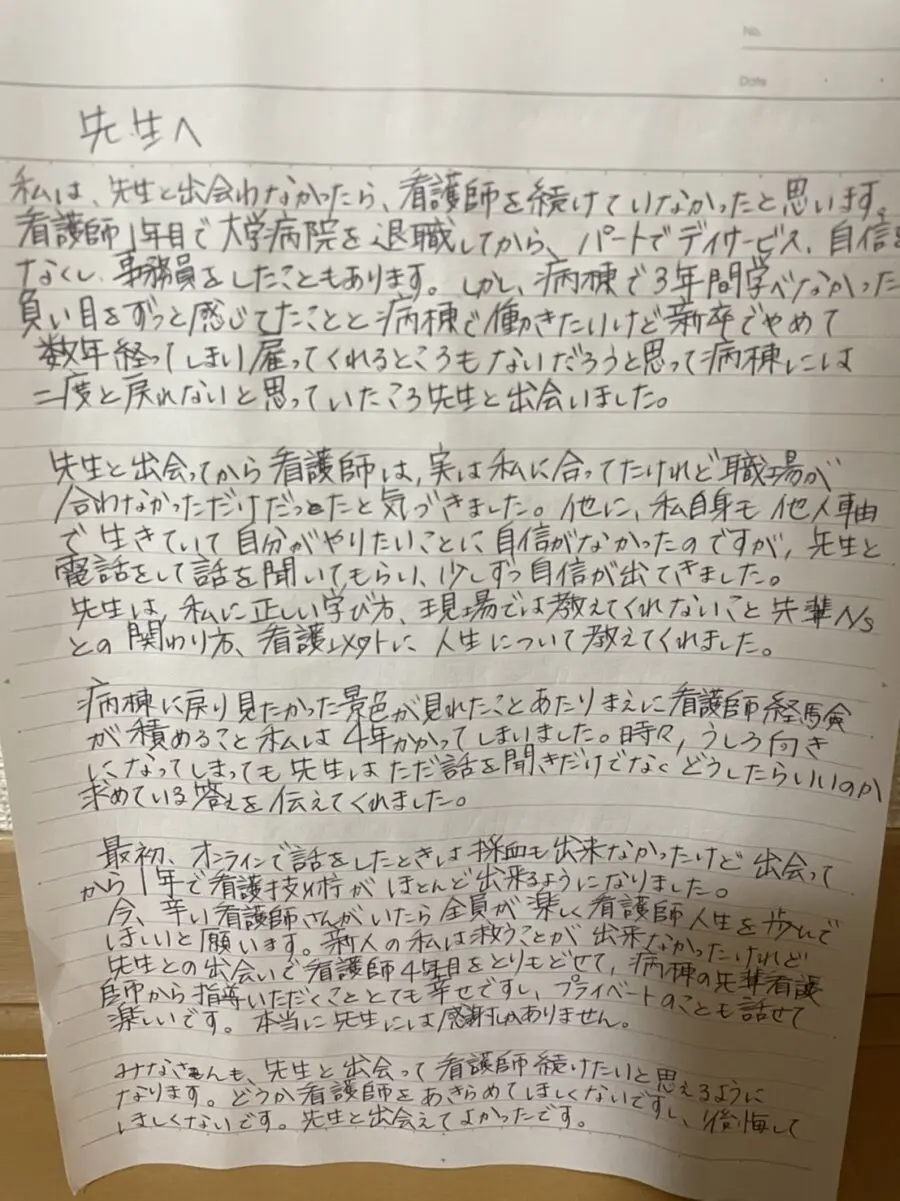 No.
Date
先生へ
私は、先生と出会わなかったら、看護師を続けていなかったと思います。
看護師1年目で大学病院を退職してから、パートでデイサービス、自信を
なくし、事務員をしたこともあります。しかし、病棟で3年間学べなかった
負い目をずっと感じてたことと病棟で働きたいけど新卒でやめて
数年経ってしまい雇ってくれるところもないだろうと思って病棟には
二度と戻れないと思っていたころ先生と出会いました。
先生と出会ってから看護師は、実は私に合ってたけれど職場が
合わなかっただけだったと気づきました。他に、私自身も他人軸
で生きていて自分がやりたいことに自信がなかったのですが、先生と
電話をして話を聞いてもらい、少しずつ自信が出てきました。
先生は、私に正しい学び方、現場では教えてくれないこと先輩Ns
との関わり方、看護以外に人生について教えてくれました。
病棟に戻り見たかった景色が見れたことあたりまえに看護師経験
が積めること私は4年かかってしまいました。時々、うしろ向き
になってしまっても先生はただ話を聞きだけでなくどうしたらいいのか
求めている答えを伝えてくれました。
最初、オンラインで話をしたときは採血も出来なかったけど出会って
から1年で看護技術がほとんど出来るようになりました。
今、辛い看護師さんがいたら全員が楽しく看護師人生を歩んで
ほしいと願います。新人の私は救うことが出来なかったけれど
先生との出会いで看護師4年目をとりもどせて、病棟の先輩看護
師から指導いただくこととても幸せですし、プライベートのことも話せて
楽しいです。本当に先生には感謝しかありません。
みなさんも、先生と出会って看護師続けたいと思えるように
なります。どうか看護師をあきらめてほしくないですし、後悔して
ほしくないです。先生と出会えてよかったです。